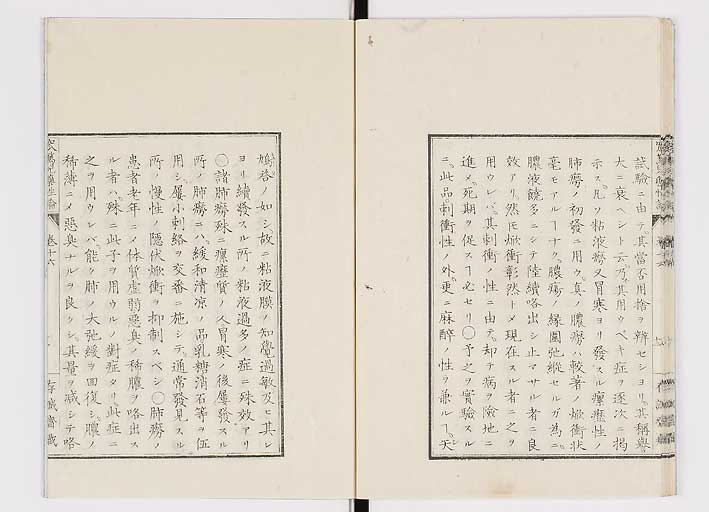 試驗ニ由テ。其當否用捨ヲ辨セシヨリ。其稱譽
大ニ衰ヘント云フ。乃其用ウベキ症ヲ逐次ニ揭
示ス。凡ソ粘液癆又冒寒ヨリ發スル瘰癧性ノ
肺癆ノ初發ニ用ウ。真ノ膿癆ハ較著ノ焮衝狀
毫モアルヿナク。膿瘍ノ緣圍弛縱セルガ為ニ。
膿液饒多ニシテ陸續咯出シ止マサル者ニ良
效アリ。然𪜈焮衝彰然トメ現在スル者ニ之ヲ
用ウレバ。其刺衝ノ性ニ由テ。却テ病ヲ險地ニ
進メ。死期ヲ促スヿ必セリ○予之ヲ實驗スル
ニ。此品刺衝性ノ外。更ニ麻醉ノ性ヲ兼ルヿ。天
ノ如シ。故ニ粘液膜ノ知覺過敏及ヒ其レ
ヨリ續發スル所ノ粘液過多ノ症ニ殊效アリ
○諸肺癆殊ニ瘰癧質ノ人冒寒ノ後屢發スル
所ノ肺癆ニハ。緩和清凉ノ品乳糖消石等ヲ伍
用シ。屢小刺絡ヲ交番ニ施シテ。通常發見スル
所ノ慢性ノ隱伏焮衝ヲ抑制スベシ○肺癆ノ
患者老年ニメ体質虛弱惡臭ノ稀膿ヲ咯出ス
ル者ハ。殊ニ此子ヲ用ウルノ對症タリ。此症ニ
之ヲ用ウレバ能ク肺ノ大弛緩ヲ回復シ。膿ノ
稀薄ニメ惡臭ナルヲ良クシ。其量ヲ減シテ咯
卷十六